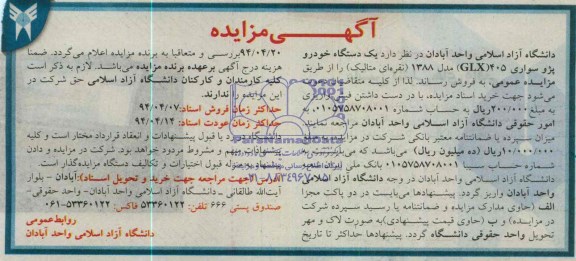 آگهـــی مزایده
دانشگاه آزاد اسلامی واحد آبادان در نظر دارد یک دستگاه خودرو
پژو سواری ۴۰۵ (GLX) مدل ۱۳۸۸ (نقره‌ای متالیک) را از طریق
مزایده عمومی، به فروش رساند. لذا از کلیه متقاضیان دعوت
می‌شود جهت خرید اسناد مزایده، با در دست داشتن فیش واریزی
به مبلغ ۲۰۰۰۰۰ ریال به حساب شماره ۰۱۰۵۷۵۸۷۰۸۰۰۱ به
امور حقوقی دانشگاه آزاد اسلامی واحد آبادان مراجعه نمایند.
میزان سپرده یا ضمانتنامه معتبر بانکی شرکت در مزایده مبلغ
۱۰/۰۰۰/۰۰۰ ریال (ده میلیون ریال) می‌باشد که می‌بایست به
شماره حساب سیبا ۰۱۰۵۷۵۸۷۰۸۰۰۱ بانک ملی ایران شعبه
دانشگاه آزاد اسلامی واحد آبادان در وجه دانشگاه آزاد اسلامی
واحد آبادان واریز گردد. پیشنهادها می‌بایست در دو پاکت مجزا
الف (حاوی مدارک مزایده و ضمانتنامه یا رسید سپرده شرکت
در مزایده) و ب (حاوی قیمت پیشنهادی) به صورت لاک و مهر
تحویل واحد حقوقی دانشگاه گردد. پیشنهادها حداکثر تا تاریخ
۹۴/۰۴/۲۰ بررسی و متعاقبا به برنده مزایده اعلام می‌گردد. ضمنا
هزینه درج آگهی برعهده برنده مزایده می‌باشد. لازم به ذکر است
کلیه کارمندان و کارکنان دانشگاه آزاد اسلامی حق شرکت در
این مزایده را ندارند.
حداکثر زمان فروش اسناد: ۹۴/۰۴/۰۷
حداکثر زمان عودت اسناد: ۹۴/۰۴/۱۴
دانشگاه در رد یا قبول پیشنهادات و انعقاد قرارداد مختار است و کلیه
پیشنهادهای مبهم و مشروط مردود خواهد بود. شرکت در مزایده و دادن
پیشنهاد به منزله قبول اختیارات و تکالیف دستگاه مزایده‌گذار است.
(جهت مراجعه جهت خرید و تحویل اسناد): آبادان - بلوار
آیت‌الله طالقانی - دانشگاه آزاد اسلامی واحد آبادان - واحد حقوقی -
صندوق پستی ۶۶۶ تلفن: ۵۳۳۶۰۱۲۲ فاکس: ۵۳۳۶۰۱۲۲-۰۶۱
روابط عمومی
دانشگاه آزاد اسلامی واحد آبادان
ParsNamadData